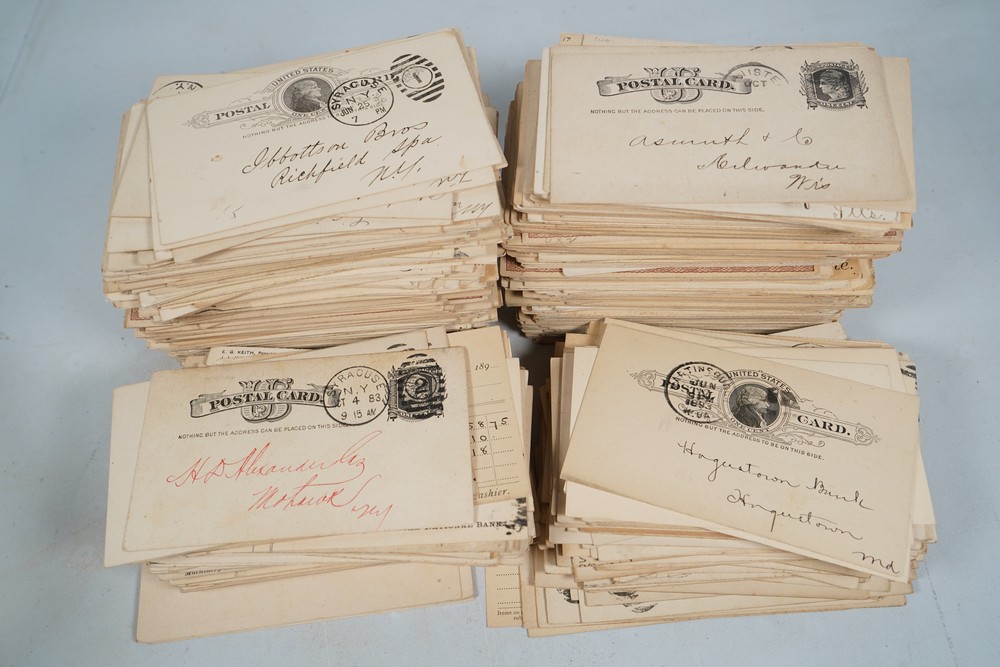 UNITED STATES
POSTAL
ONE CENT
NOTHING BUT THE ADDRESS CAN BE
SYRACUSE
N.Y.
JUN 25
7 PM
Ibbottson Bros
Richfield Spa
N.Y.
US
POSTAL CARD.
NOTHING BUT THE ADDRESS CAN BE PLACED ON THIS SIDE.
NISTE
OCT
Asmuth & Co
Milwaukee
Wis
Ills.
189
5875
10
18
ashier.
US
POSTAL CARD.
NOTHING BUT THE ADDRESS CAN BE PLACED ON THIS SIDE.
SYRACUSE
N.Y.
OCT 4 83
9 15 AM
2
H D Alexander
Mohawk
NATIONAL BANK
UNITED STATES
POSTAL CARD.
ONE CENT
NOTHING BUT THE ADDRESS TO BE ON THIS SIDE.
JUN
1893
W.VA
Hagerstown Bank
Hagerstown
Md